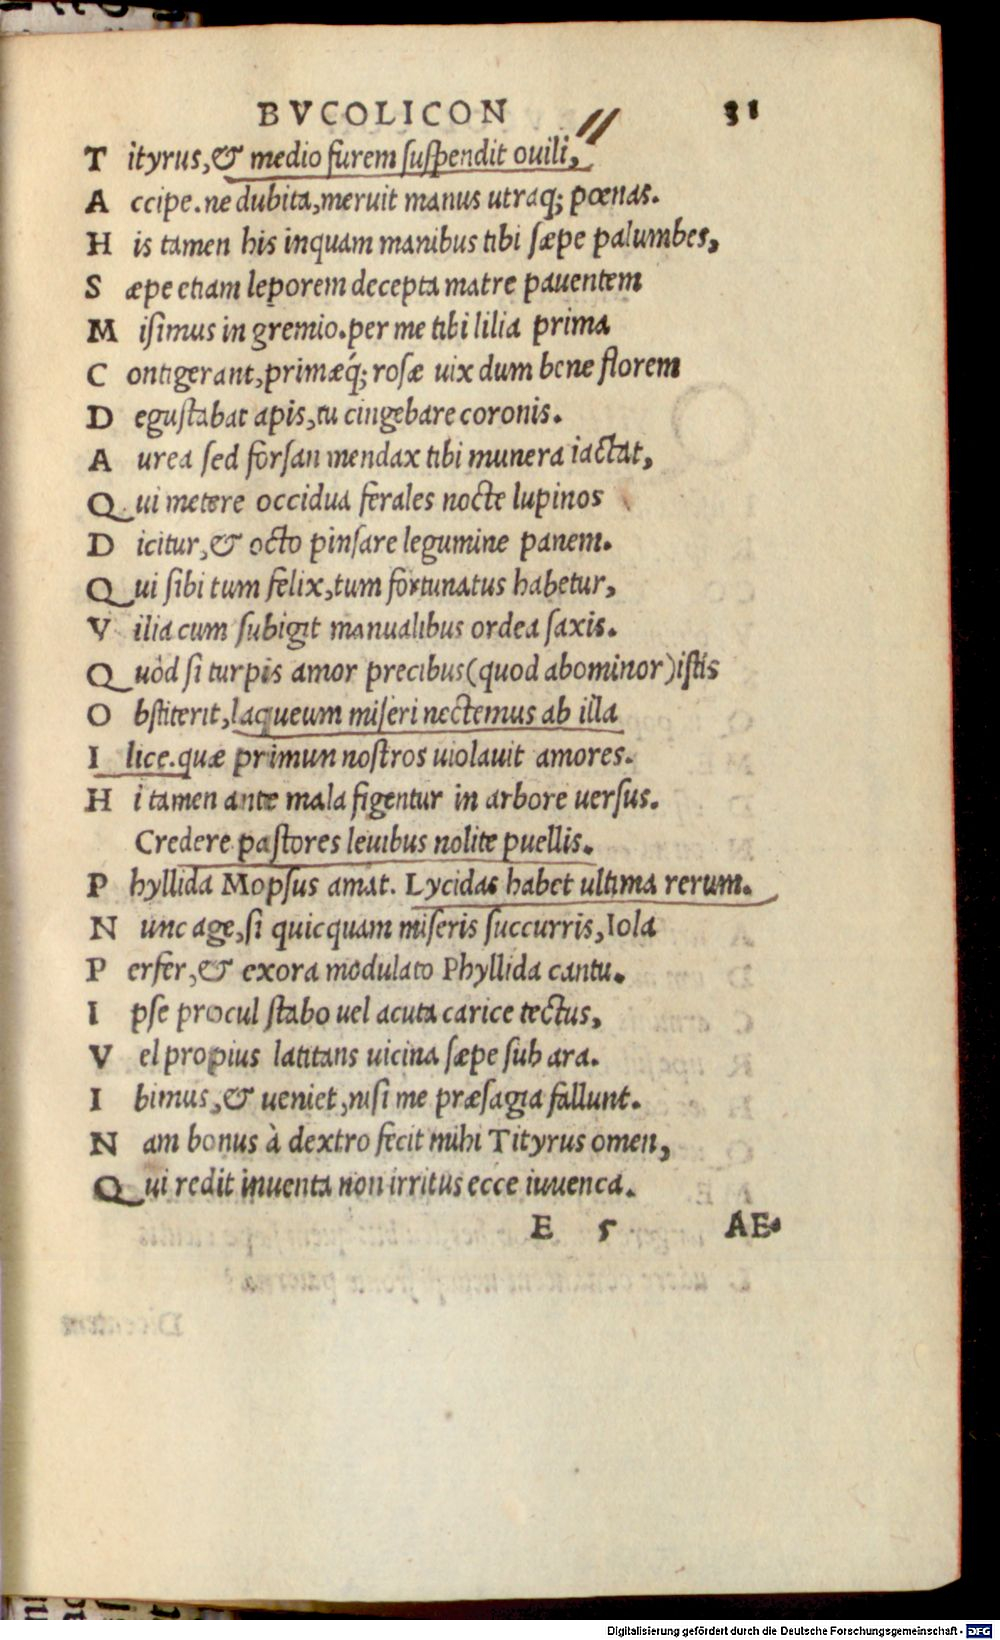 BVCOLICON 31
Tityrus, & medio furem suspendit ovili,
Accipe. ne dubita, meruit manus utraq; pœnas.
His tamen his inquam manibus tibi sæpe palumbes,
Sæpe etiam leporem decepta matre pauentem
Misimus in gremio. per me tibi lilia prima
Contigerant, primæq́; rosæ uix dum bene florem
Degustabat apis, tu cingebare coronis.
Aurea sed forsan mendax tibi munera iactat,
Qui metere occidua ferales nocte lupinos
Dicitur, & octo pinsare legumine panem.
Qui sibi tum felix, tum fortunatus habetur,
Vilia cum subigit manualibus ordea saxis.
Quòd si turpis amor precibus (quod abominor) istis
Obstiterit, laqueum miseri nectemus ab illa
Ilice. quæ primun nostros uiolauit amores.
Hi tamen ante mala figentur in arbore uersus.
Credere pastores leuibus nolite puellis.
Phyllida Mopsus amat. Lycidas habet ultima rerum.
Nunc age, si quicquam miseris succurris, Iola
Perfer, & exora modulato Phyllida cantu.
Ipse procul stabo uel acuta carice tectus,
Vel propius latitans uicina sæpe sub ara.
Ibimus, & ueniet, nisi me præsagia fallunt.
Nam bonus à dextro fecit mihi Tityrus omen,
Qui redit inuenta non irritus ecce iuuenca.
E 5 AE-
Digitalisierung gefördert durch die Deutsche Forschungsgemeinschaft - DFG